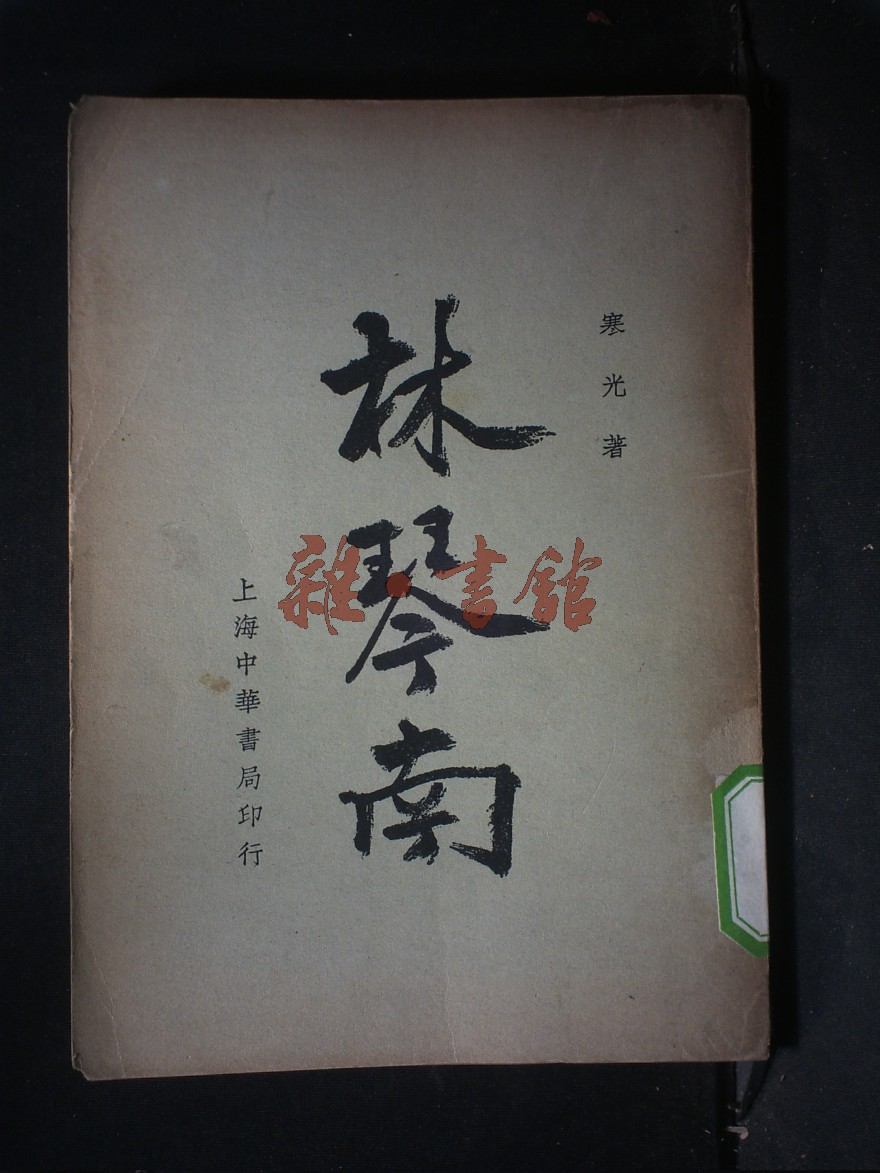 寒光著
林琴南
上海中華書局印行
雜·書館